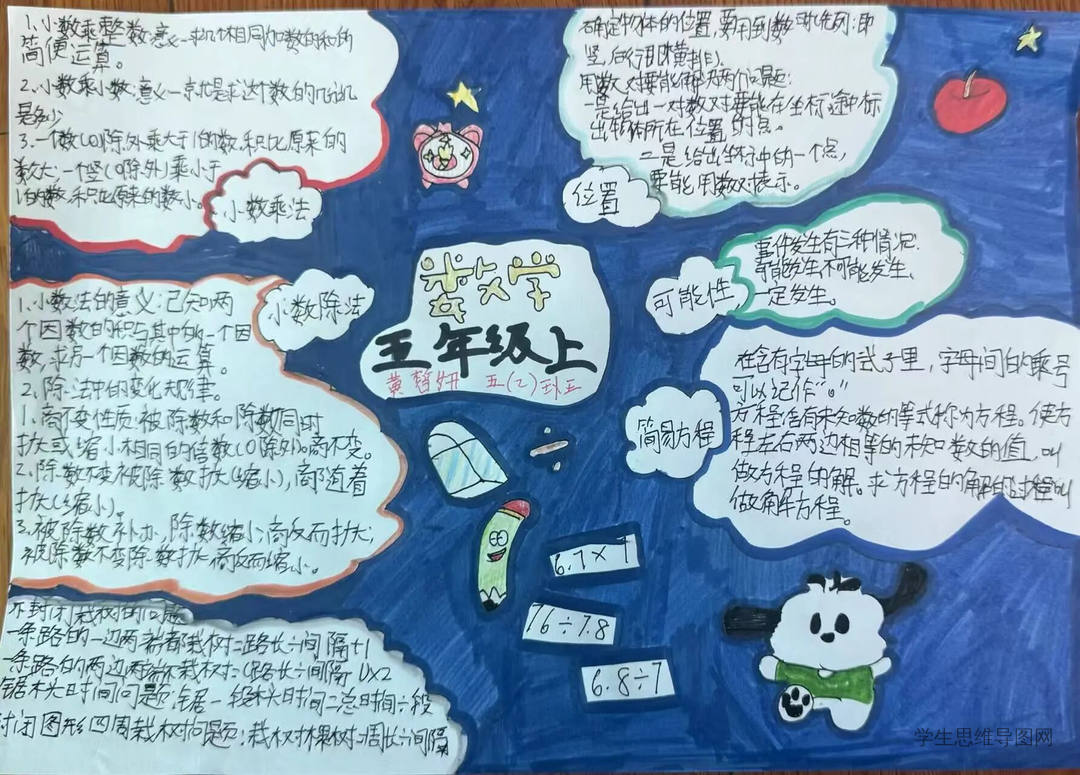 1、小数乘整数:意义一求几个相同加数的和的
简便运算。
2.小数乘小数:意义一就是求这个数的几分几
是多少
3.一个数(0除外乘大于1的数,积比原来的
数大;一个(0除外)乘小于
1的数,积比原来的数小。
小数乘法
确定物体的位置,要用到数对
竖,后行即横排)。
用数对要能解决两个问题:
一是给出一对数对要能在坐标途中标
出物体所在位置的点。
二是给出坐标中的一个点,
要能用数对表示。
位置
数学
五年级上
五(2)班
1、小数法的意义:已知两
个因数的积与其中的一个因
数,求另一个因数的运算。
2、除法中的变化规律。
1、商不变性质:被除数和除数同时
扩大或缩小相同的倍数(0除外)。商不变。
2、除数不变被除数扩大(缩小),商随着
扩大(缩小)。
3、被除数不,除数缩小,商反而扩大;
被除数不变除数扩大商反而缩小。
小数除法
事件发生有三种情况:
可能发生不可能发生、
一定发生。
可能性
在含有字母的式子里,字母间的乘号
可以记作“。”
方程:含有未知数的等式称为方程。使方
程左右两边相等的未知数的值,叫
做方程的解。求方程的解的过程叫
做解方程。
简易方程
不封闭栽树的问题
一条路的一边两端都栽树=路长÷间隔+1
一条路的两边两端不栽树=(路长÷间隔-1)×2
锯木头时间问题:锯一段木头时间=总时间÷段
封闭图形四周栽树问题:栽树棵树=周长÷间隔
6.7×7
76÷7.8
6.8÷7
学生思维导图网